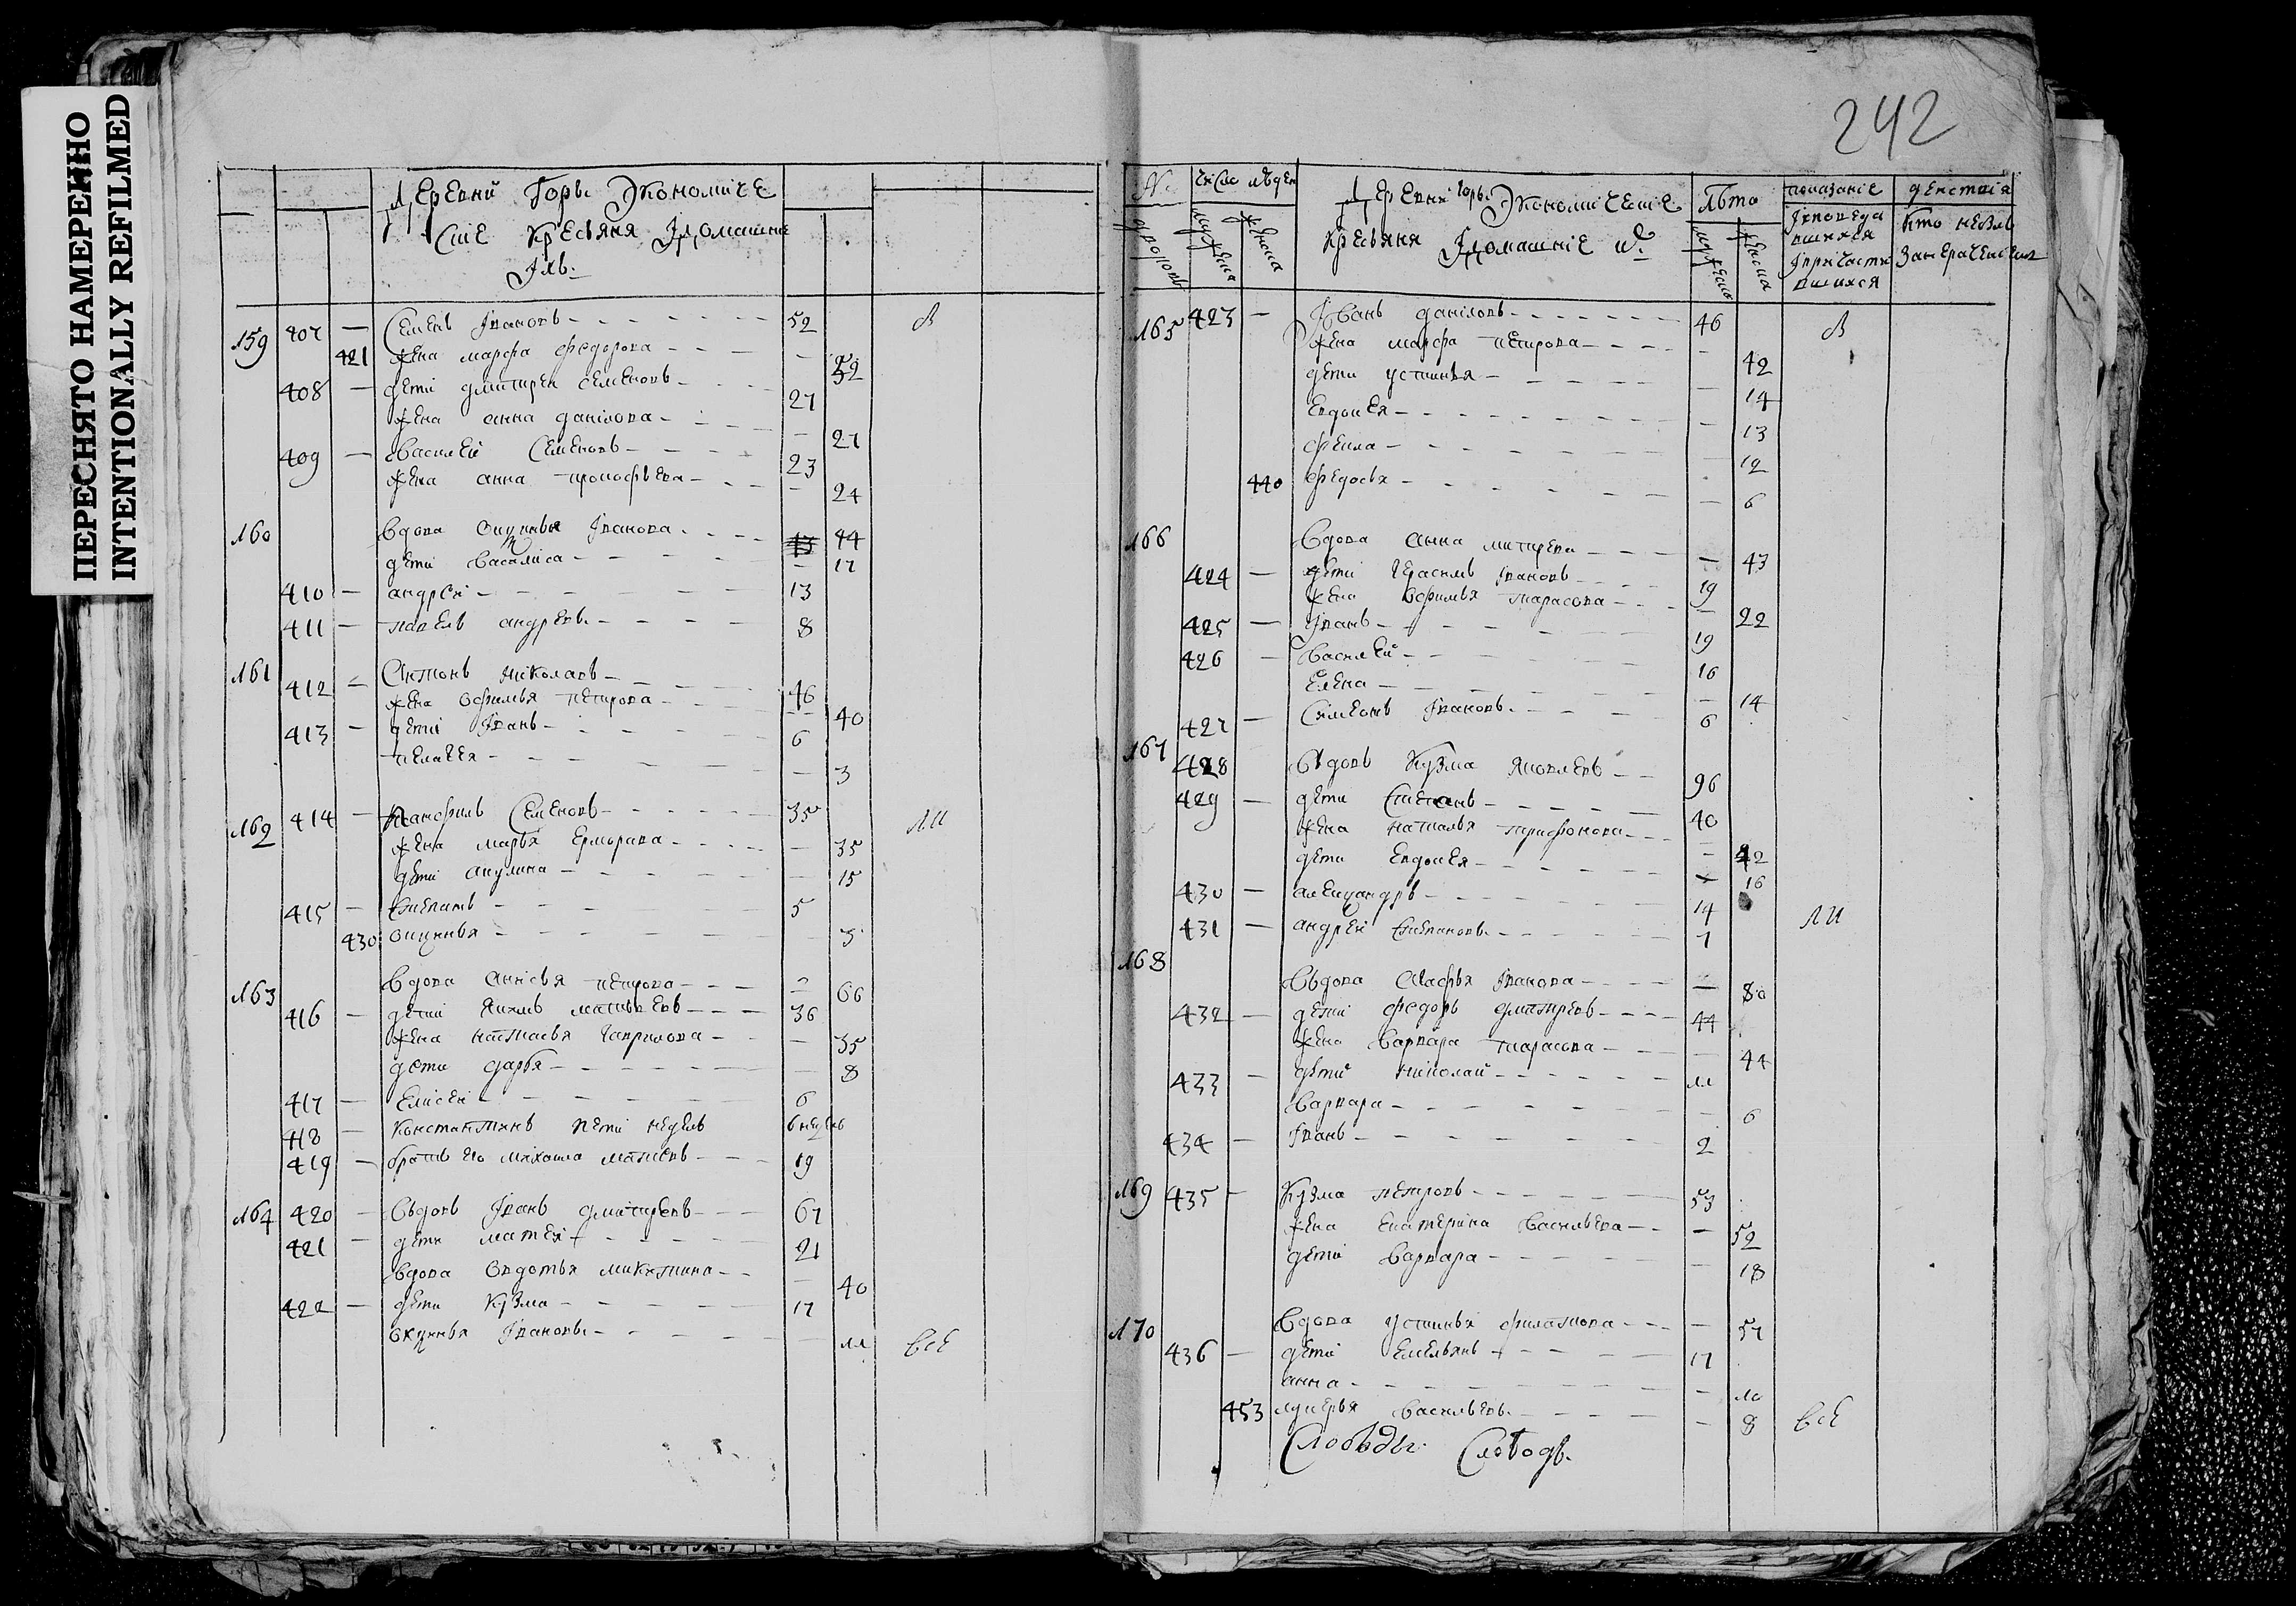 ПЕРЕСНЯТО НАМЕРЕННО
INTENTIONALLY REFILMED
242
Деревни Горы Экономиче
ские крестьяня Идомашние
ихъ
159 407 — Семенъ Ивановъ 52
421 жена марфа федорова — 52
408 — дети дмитреи семеновъ 27
жена анна данилова — 27
409 — Василеи Семеновъ 23
жена анна прокофьева — 24
160 Вдова Иванова 44
дети Василиса — 17
410 — андреи 13
411 — павелъ андреевъ 8
161 412 — Антонъ николаевъ 46
жена Офимья петрова — 40
413 — дети Иванъ 6
пелагея — 3
162 414 — Панфилъ Семеновъ 35
жена марья — 35
дети акулина — 15
415 — Степанъ 5
430 3
163 Вдова анисья петрова — 66
416 — дети Якимъ матвеевъ 36
жена настасья гаврилова — 35
дети дарья — 8
417 — Елисеи 6
418 — Константинъ пети недель 6 недель
419 — братъ его михаила матвеевъ 19
164 420 — Вьдовъ Иванъ дмитревъ 67
421 — дети матвеи 21
Вдова Овдотья микитина — 40
422 — дети Кузма 17
Ивановъ — 11 Всё
№ число людеи Деревни горы Экономические лета показание действия
дворовъ мужеска женска крестьяня Идомашние ихъ мужеска женска
165 423 — Иванъ даниловъ 46
жена марфа петрова — 42
дети устинья — 14
Евдокея — 13
фекла — 12
440 федосья — 6
166 Вдова Анна митрева — 43
424 — дети Герасимъ Ивановъ 19
жена Офимья тарасова — 22
425 — Иванъ 19
426 — Василеи 16
Елена — 14
427 — Симеонъ Ивановъ 6
167 428 Вьдовъ Кузма Яковлевъ 96
429 — дети Степанъ 40
жена наталья трифонова — 42
дети Евдокея — 16
430 — александръ 14
431 — андреи Степановъ 7
168 Вьдова Агафья Иванова — 80
432 — дети федоръ дмитревъ 44
жена Варвара тарасова — 44
433 — дети николаи 11
Варвара — 6
434 — Иванъ 2
169 435 — Кузма петровъ 53
жена Екатерина Васильева — 52
дети Варвара — 18
170 Вдова устинья филатиова — 57
436 — дети Емельянъ 17
анна — 10
453 лукерья Васильевъ — 8 Всё
Слободы Слободъ